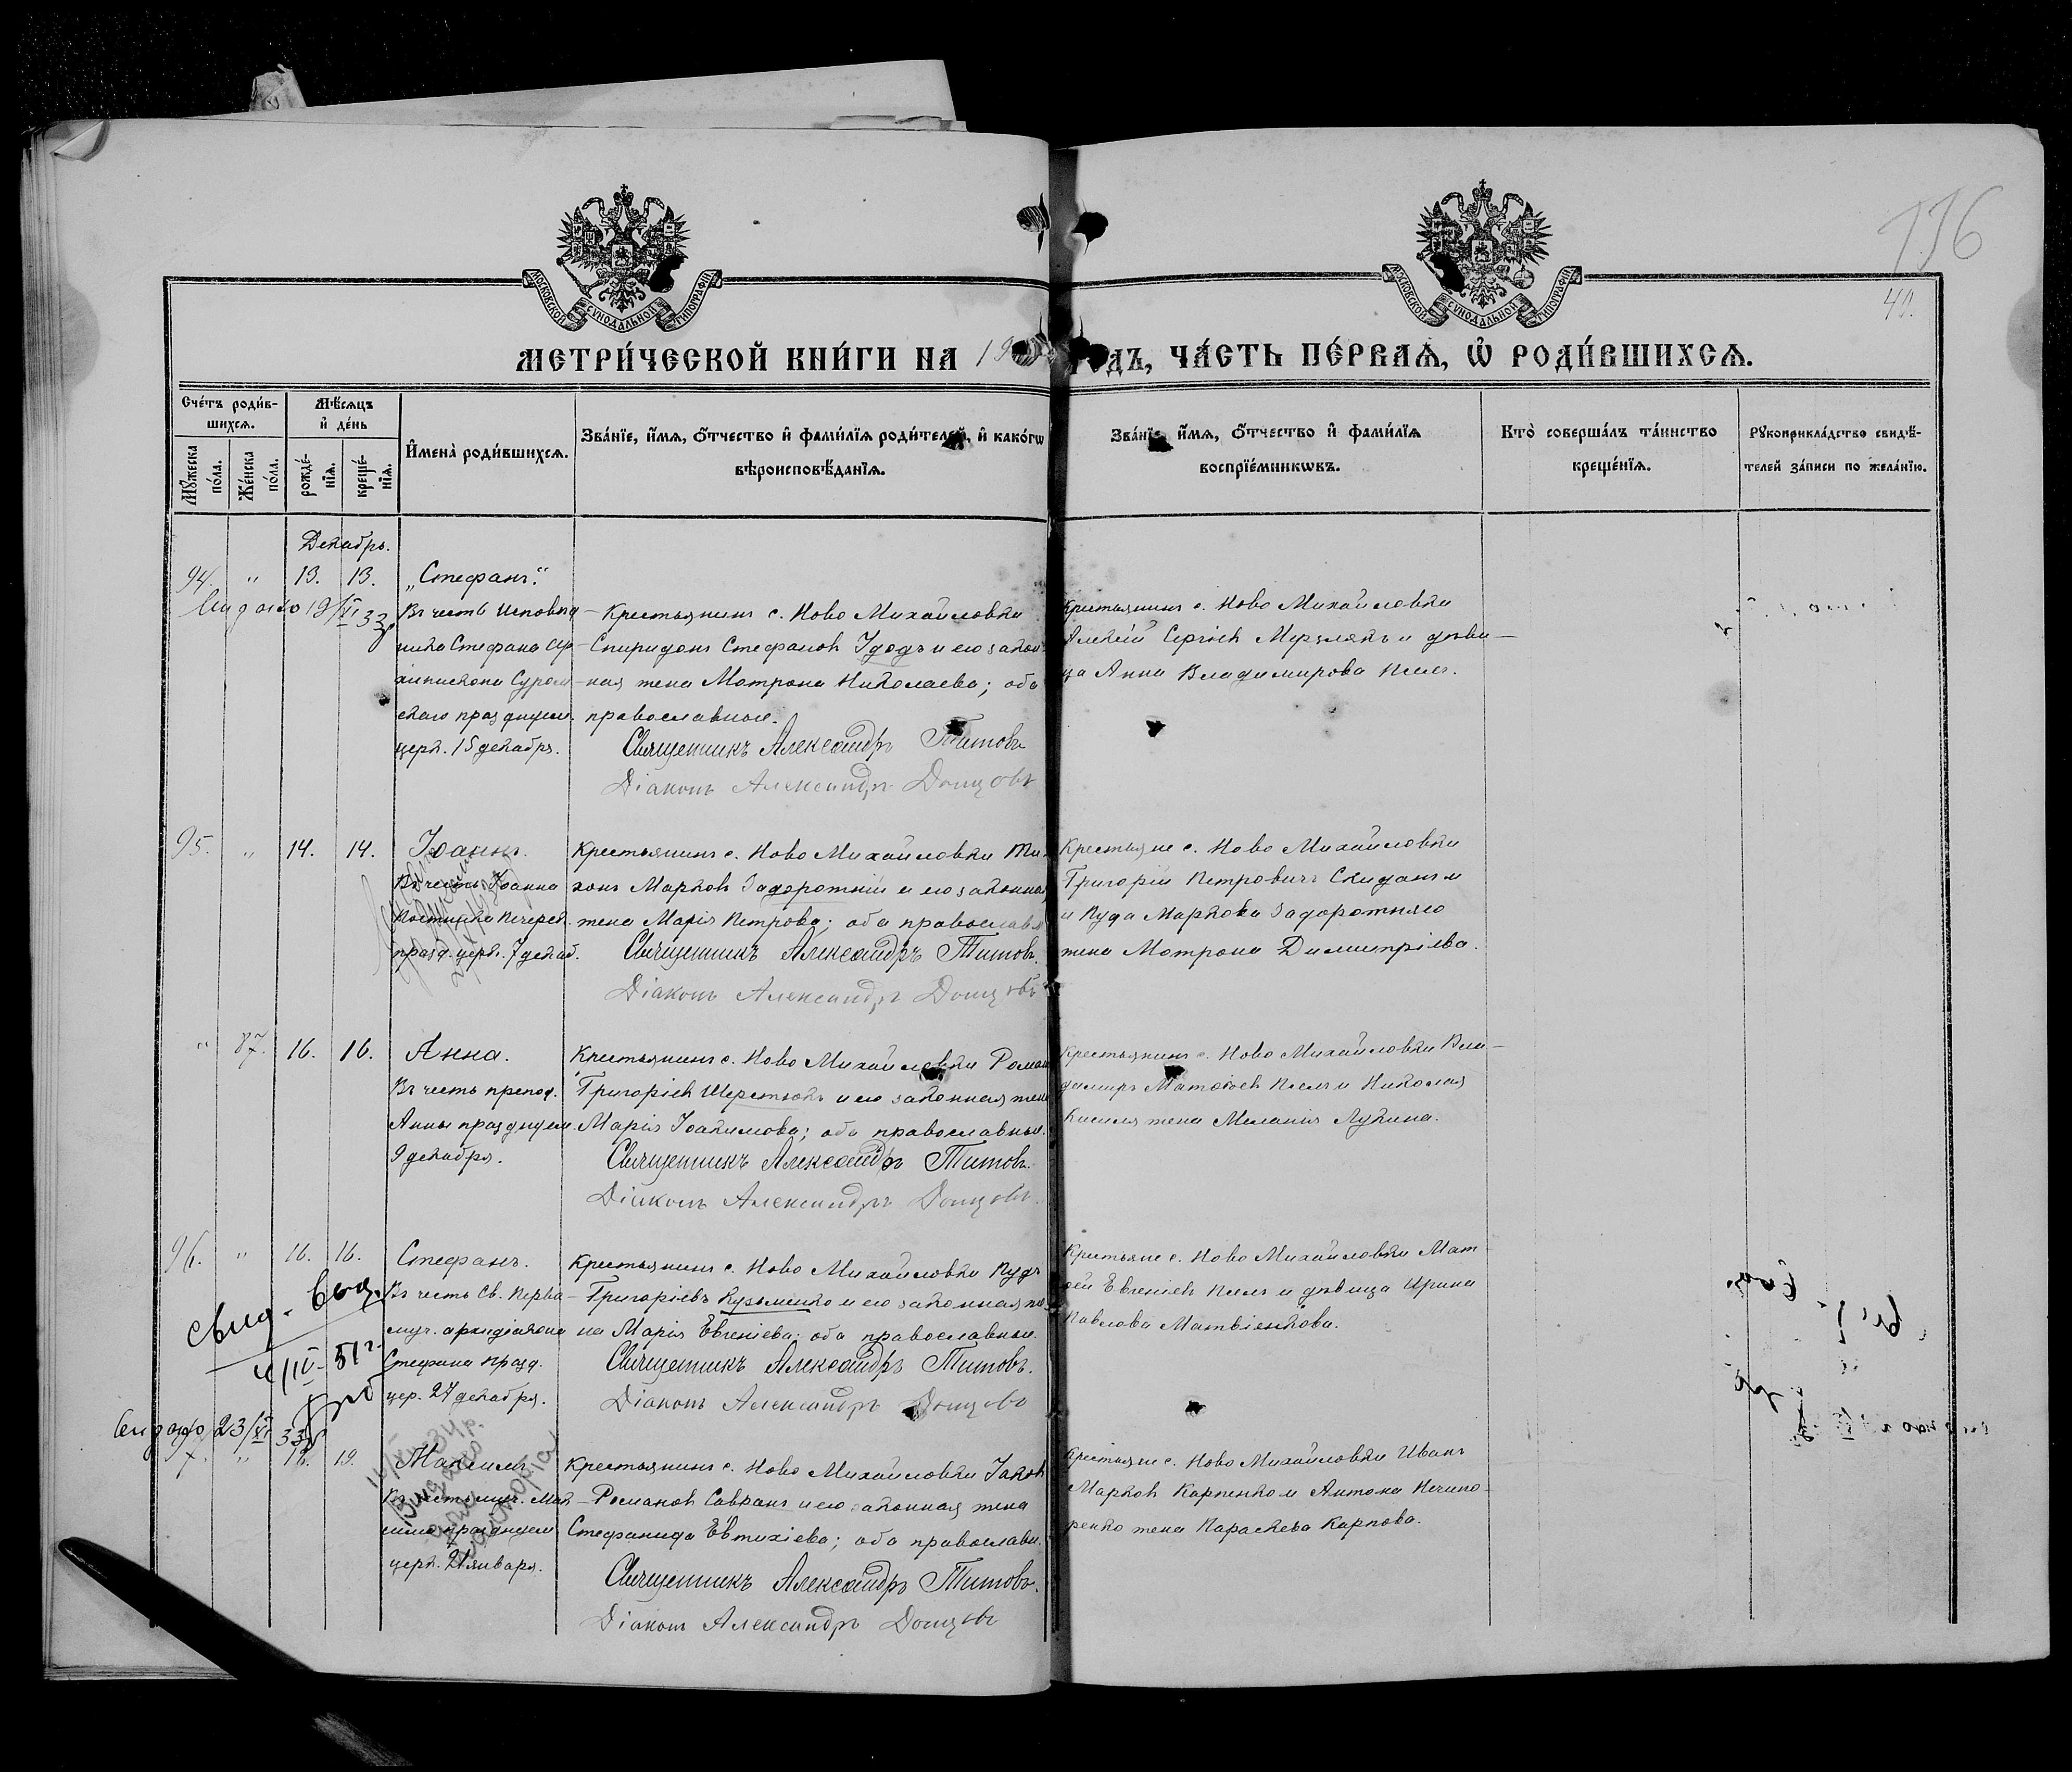 136
40.
МОСКОВСКОЙ СѴНОДАЛЬНОЙ ТИПОГРАФІИ
МОСКОВСКОЙ СѴНОДАЛЬНОЙ ТИПОГРАФІИ
МЕТРИ́ЧЕСКОЙ КНИ́ГИ НА 19
ГОДЪ, ЧА́СТЬ ПЕ́РВАѦ, Ѽ РОДИ́ВШИХСѦ.
Сче́тъ роди́в-
шихсѧ.
Мѣ́сѧцъ
и҆ де́нь
Мꙋ́жеска
по́ла.
Же́нска
по́ла.
рожде́-
нїѧ.
креще́-
нїѧ.
И҆мена̀ роди́вшихсѧ.
Зва́нїе, и҆́мѧ, ѻ҆́тчество и҆ фами́лїѧ роди́телей, и҆ како́гѡ
вѣроисповѣ́данїѧ.
Зва́нїе, и҆́мѧ, ѻ҆́тчество и҆ фами́лїѧ
воспрїе́мникѡвъ.
Кто̀ соверша́лъ та́инство
креще́нїѧ.
Рꙋкоприкла́дство свидѣ́-
телей за́писи по жела́нїю.
Декабрь.
94. " 13. 13. „Стефанъ."
Въ честь исповѣд-
ника Стефана ар-
хіепископа Сурож-
скаго празднуем.
церк. 15 декабря.
Крестьянинъ с. Ново Михайловки
Спиридонъ Стефановъ Удодъ и его закон-
ная жена Матрона Николаева; оба
православные.
Священникъ Александръ Титовъ
Діаконъ Александръ Донцовъ
Крестьянинъ с. Ново Михайловки
Алексій Сергіевъ Мерзлякъ и дѣви-
ца Анна Владимирова Пселъ.
95. " 14. 14. Іоаннъ.
Въ честь Іоанна
Постника Печерск.
празд. церк. 7 декаб.
Крестьянинъ с. Ново Михайловки Ти-
хонъ Марковъ Задорожній и его законная
жена Марія Петрова; оба православн.
Священникъ Александръ Титовъ.
Діаконъ Александръ Донцовъ
Крестьяне с. Ново Михайловки
Григорій Петровичъ Скиданъ и
и Іуда Маркова Задорожняго
жена Матрона Димитріева.
" 87. 16. 16. Анна.
Въ честь препод.
Анны празднуем.
9 декабря.
Крестьянинъ с. Ново Михайловки Роман
Григоріевъ Шерстюкъ и его законная жена
Марія Іоакимова; оба православные.
Священникъ Александръ Титовъ.
Діаконъ Александръ Донцовъ.
Крестьянинъ с. Ново Михайловки Вла-
димиръ Матѳеевъ Пселъ и Николая
Киселя жена Меланія Лукина.
96. " 16. 16. Стефанъ.
Въ честь Св. Перво-
муч. архидіакона
Стефана празд.
цер. 27 декабря.
Крестьянинъ с. Ново Михайловки Іуда
Григоріевъ Кузьменко и его законная же-
на Марія Евгеніева; оба православные.
Священникъ Александръ Титовъ.
Діаконъ Александръ Донцовъ
Крестьяне с. Ново Михайловки Мат-
ѳей Евгеніевъ Пселъ и дѣвица Ирина
Павлова Матвіенкова.
свид. выд.
4/IV-51г.
23/VI 33
" 18. 19. Максимъ.
церк. 21 января.
Крестьянинъ с. Ново Михайловки Іаковъ
Романовъ Савранъ и его законная жена
Стефанида Евтихіева; оба православн.
Священникъ Александръ Титовъ.
Діаконъ Александръ Донцовъ
Крестьяне с. Ново Михайловки Иванъ
Марковъ Карпенко и Антона Нечипо-
ренко жена Параскева Карпова.